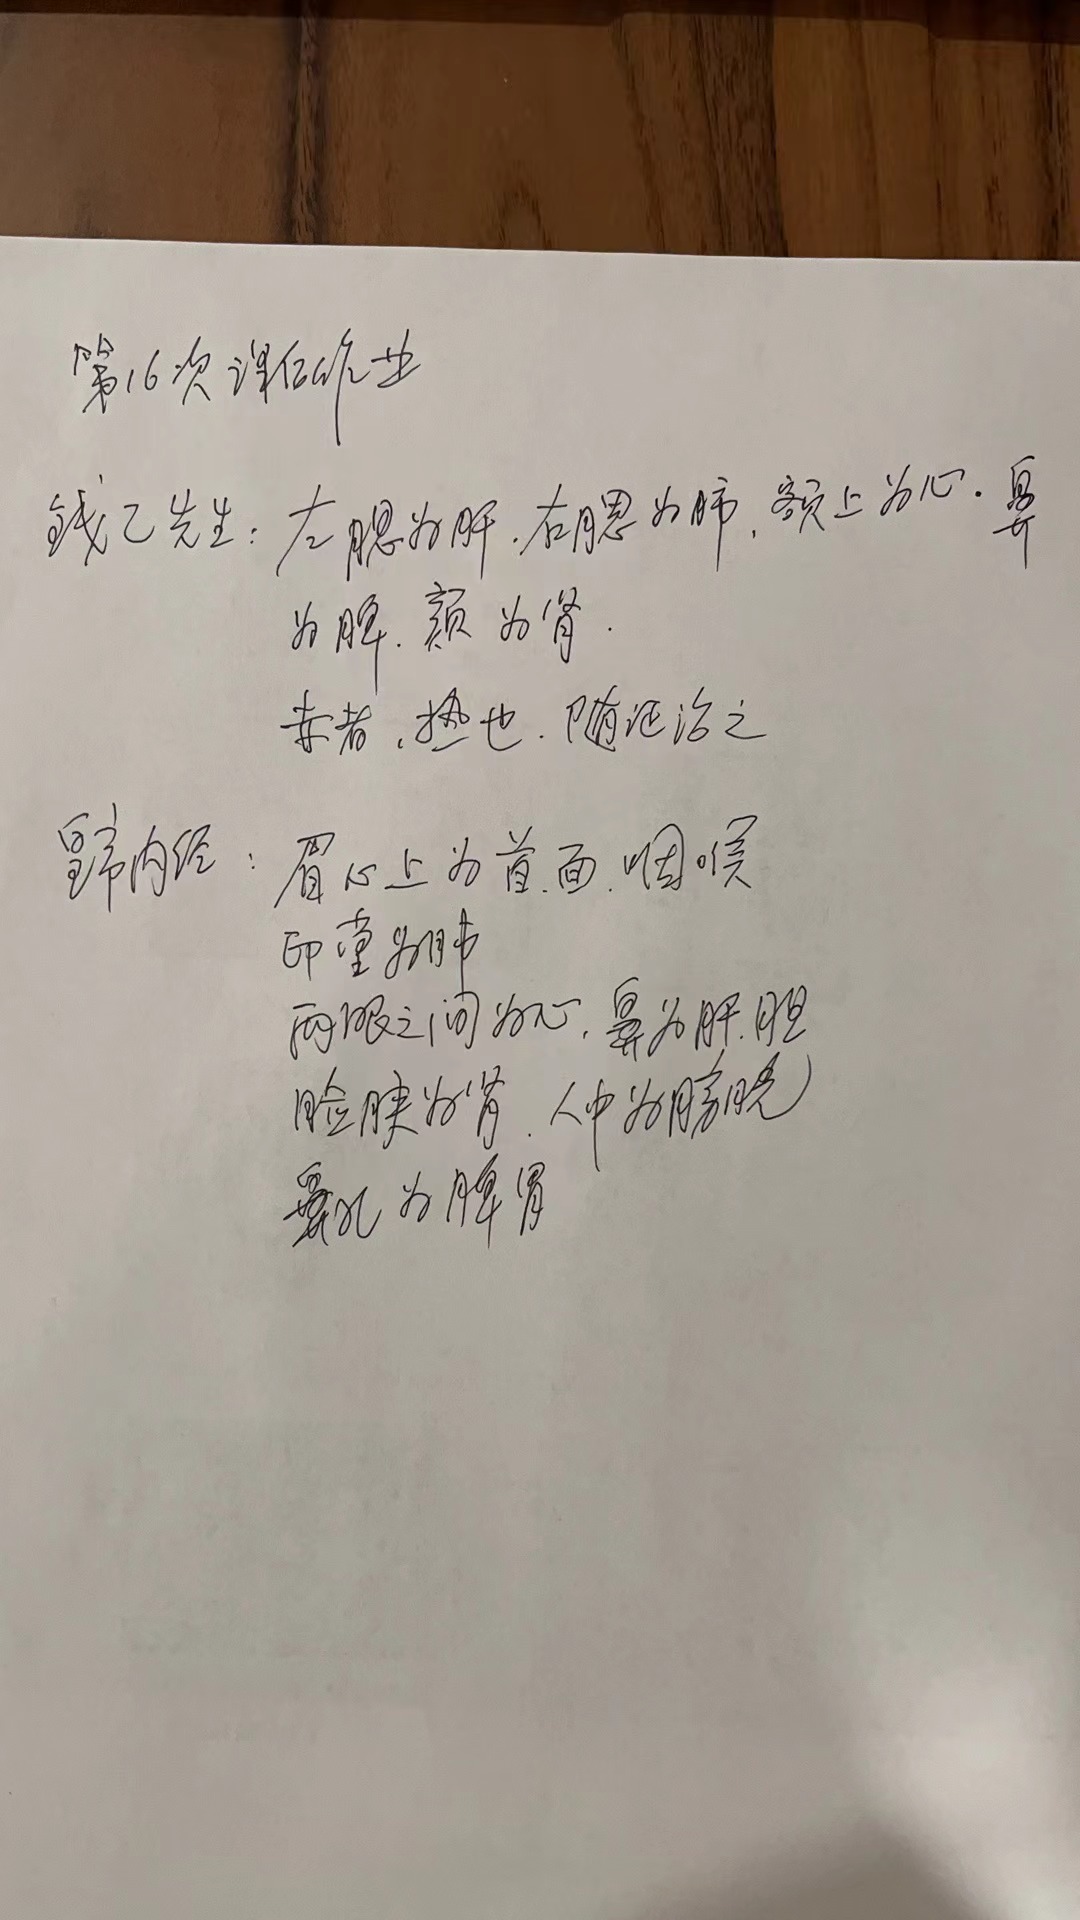 第16次课后作业
钱乙先生：左腮为肝.右腮为肺,额上为心.鼻
为脾.颏为肾.
赤者,热也.随证治之
皇帝内经：眉心上为首.面.咽喉
印堂为肺
两眼之间为心,鼻为肝.胆
脸胰为肾.人中为膀胱
鼻孔为脾胃